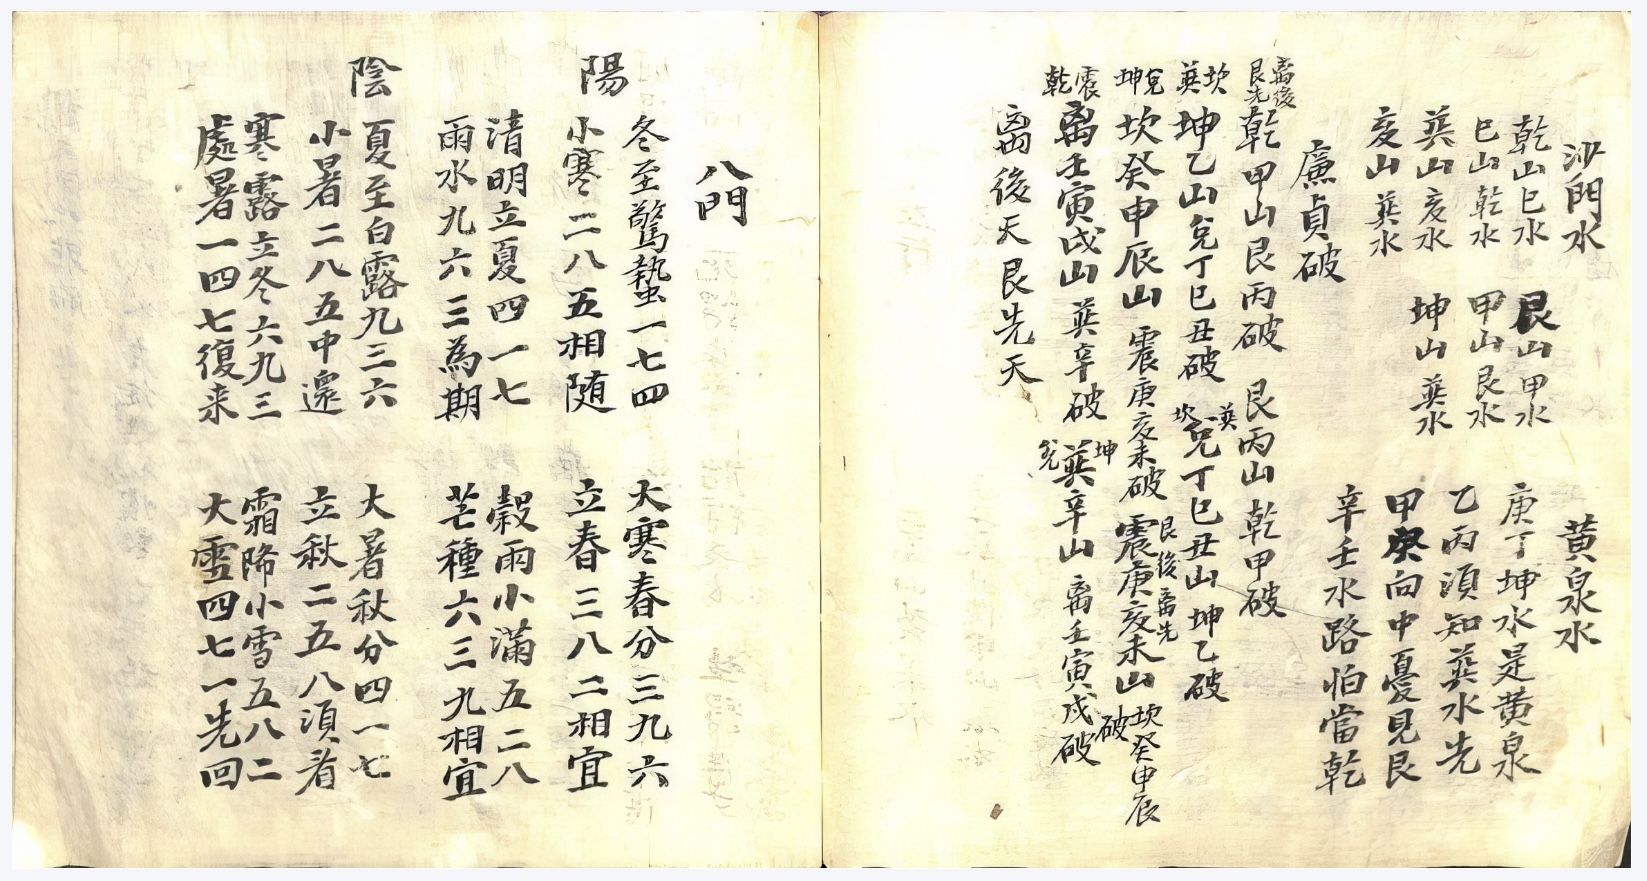 沙門水
乾山巳水 艮山甲水
巳山乾水 甲山艮水
巽山亥水 坤山巽水
亥山巽水
黄泉水
庚丁坤水是黄泉
乙丙須知巽水先
甲癸向中憂見艮
辛壬水路怕當乾
廉貞破
离後艮先 乾甲山艮丙破 艮丙山乾甲破
坎巽 坤乙山兌丁巳丑破 巽坎 兌丁巳丑山坤乙破
兌坤 坎癸申辰山震庚亥未破 艮後离先 震庚亥未山坎癸申辰破
震乾 离壬寅戌山巽辛破 坤兌 巽辛山离壬寅戌破
离後天艮先天
八門
陽
冬至驚蟄一七四 大寒春分三九六
小寒二八五相随 立春三八二相宜
清明立夏四一七 穀雨小滿五二八
雨水九六三為期 芒種六三九相宜
陰
夏至白露九三六 大暑秋分四一七
小暑二八五中還 立秋二五八須着
寒露立冬六九三 霜降小雪五八二
處暑一四七復来 大雪四七一先回